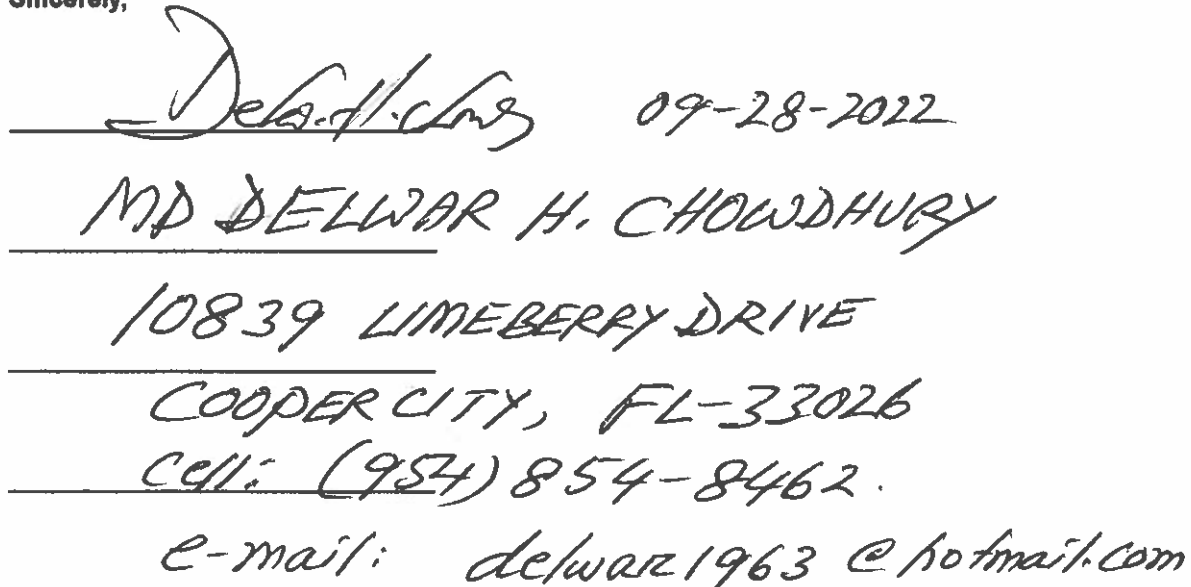 Sincerely,
09-28-2022
MD DELWAR H. CHOWDHURY
10839 LIMEBERRY DRIVE
COOPER CITY, FL-33026
Cell: (954) 854-8462.
e-mail: delwar1963@hotmail.com